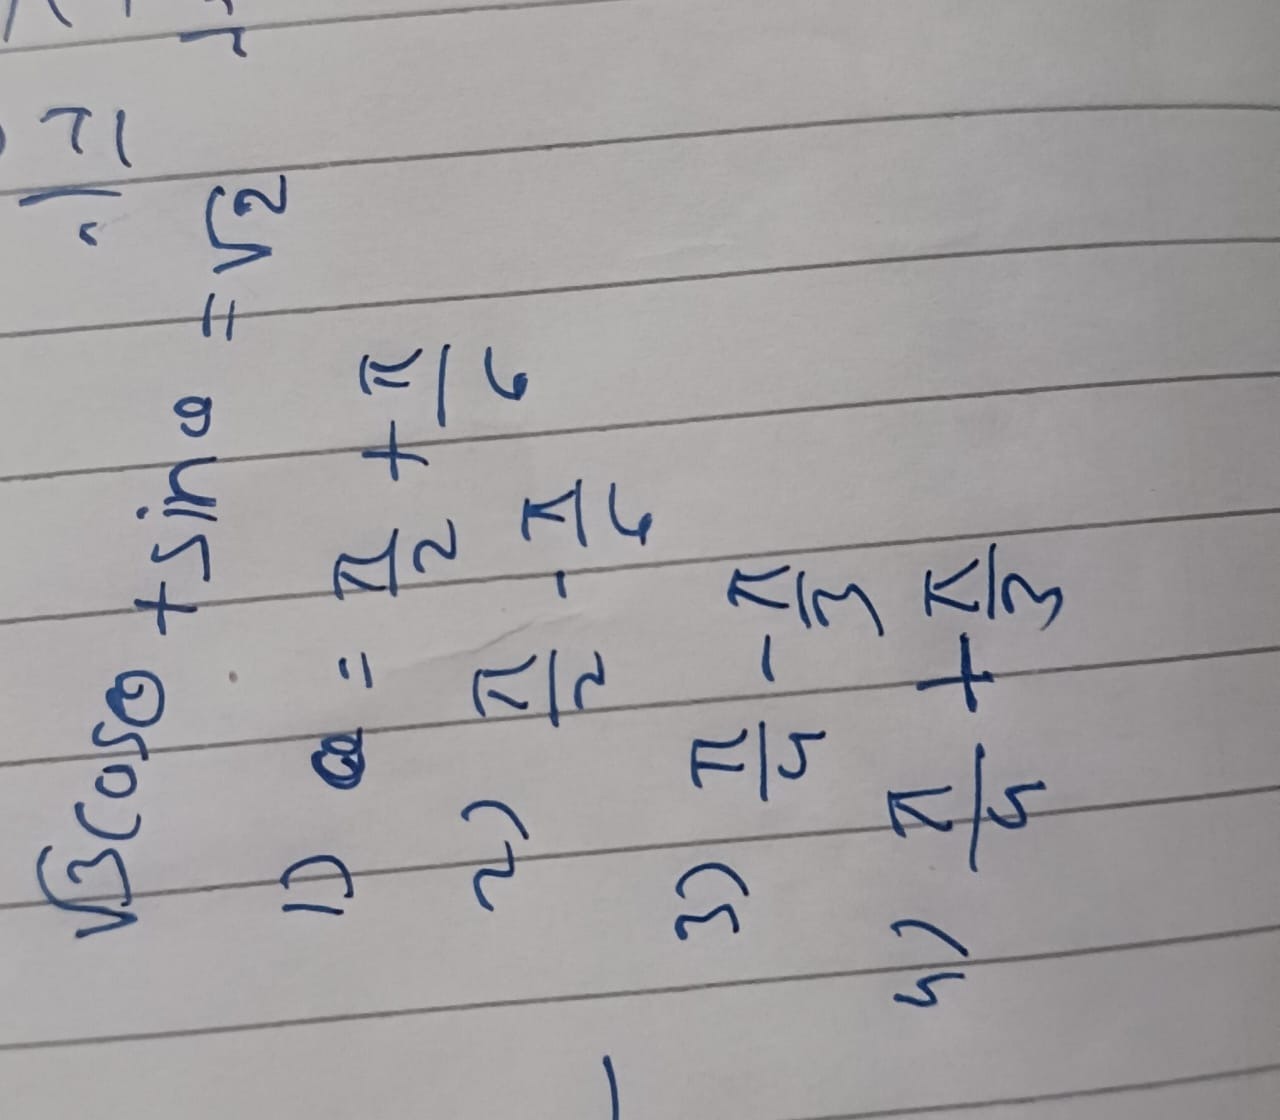 √3 cosθ + sinθ = √2
1) θ = π/2 + π/6
2) π/2 - π/6
3) π/4 - π/3
4) π/4 + π/3